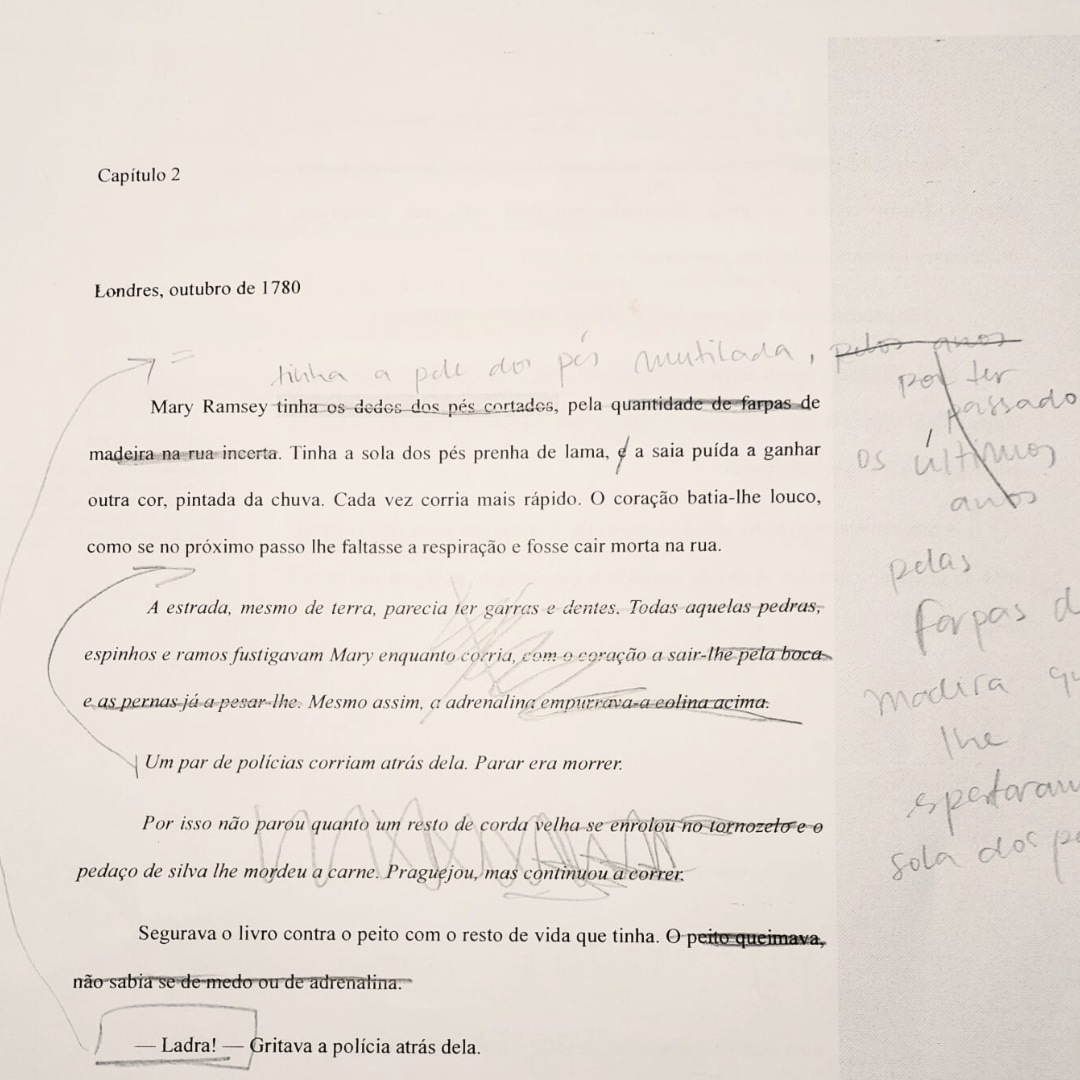 Capítulo 2
Londres, outubro de 1780
tinha a pele dos pés mutilada, pelos anos
por ter
passado
Mary Ramsey tinha os dedos dos pés cortados, pela quantidade de farpas de
madeira na rua incerta. Tinha a sola dos pés prenha de lama, e a saia puída a ganhar
os últimos
anos
outra cor, pintada da chuva. Cada vez corria mais rápido. O coração batia-lhe louco,
como se no próximo passo lhe faltasse a respiração e fosse cair morta na rua.
pelas
farpas d
A estrada, mesmo de terra, parecia ter garras e dentes. Todas aquelas pedras,
espinhos e ramos fustigavam Mary enquanto corria, com o coração a sair-lhe pela boca
madeira qu
e as pernas já a pesar-lhe. Mesmo assim, a adrenalina empurrava-a colina acima.
lhe
Um par de polícias corriam atrás dela. Parar era morrer.
espetaram
Por isso não parou quanto um resto de corda velha se enrolou no tornozelo e o
sola dos pé
pedaço de silva lhe mordeu a carne. Praguejou, mas continuou a correr.
Segurava o livro contra o peito com o resto de vida que tinha. O peito queimava,
não sabia se de medo ou de adrenalina.
— Ladra! — Gritava a polícia atrás dela.